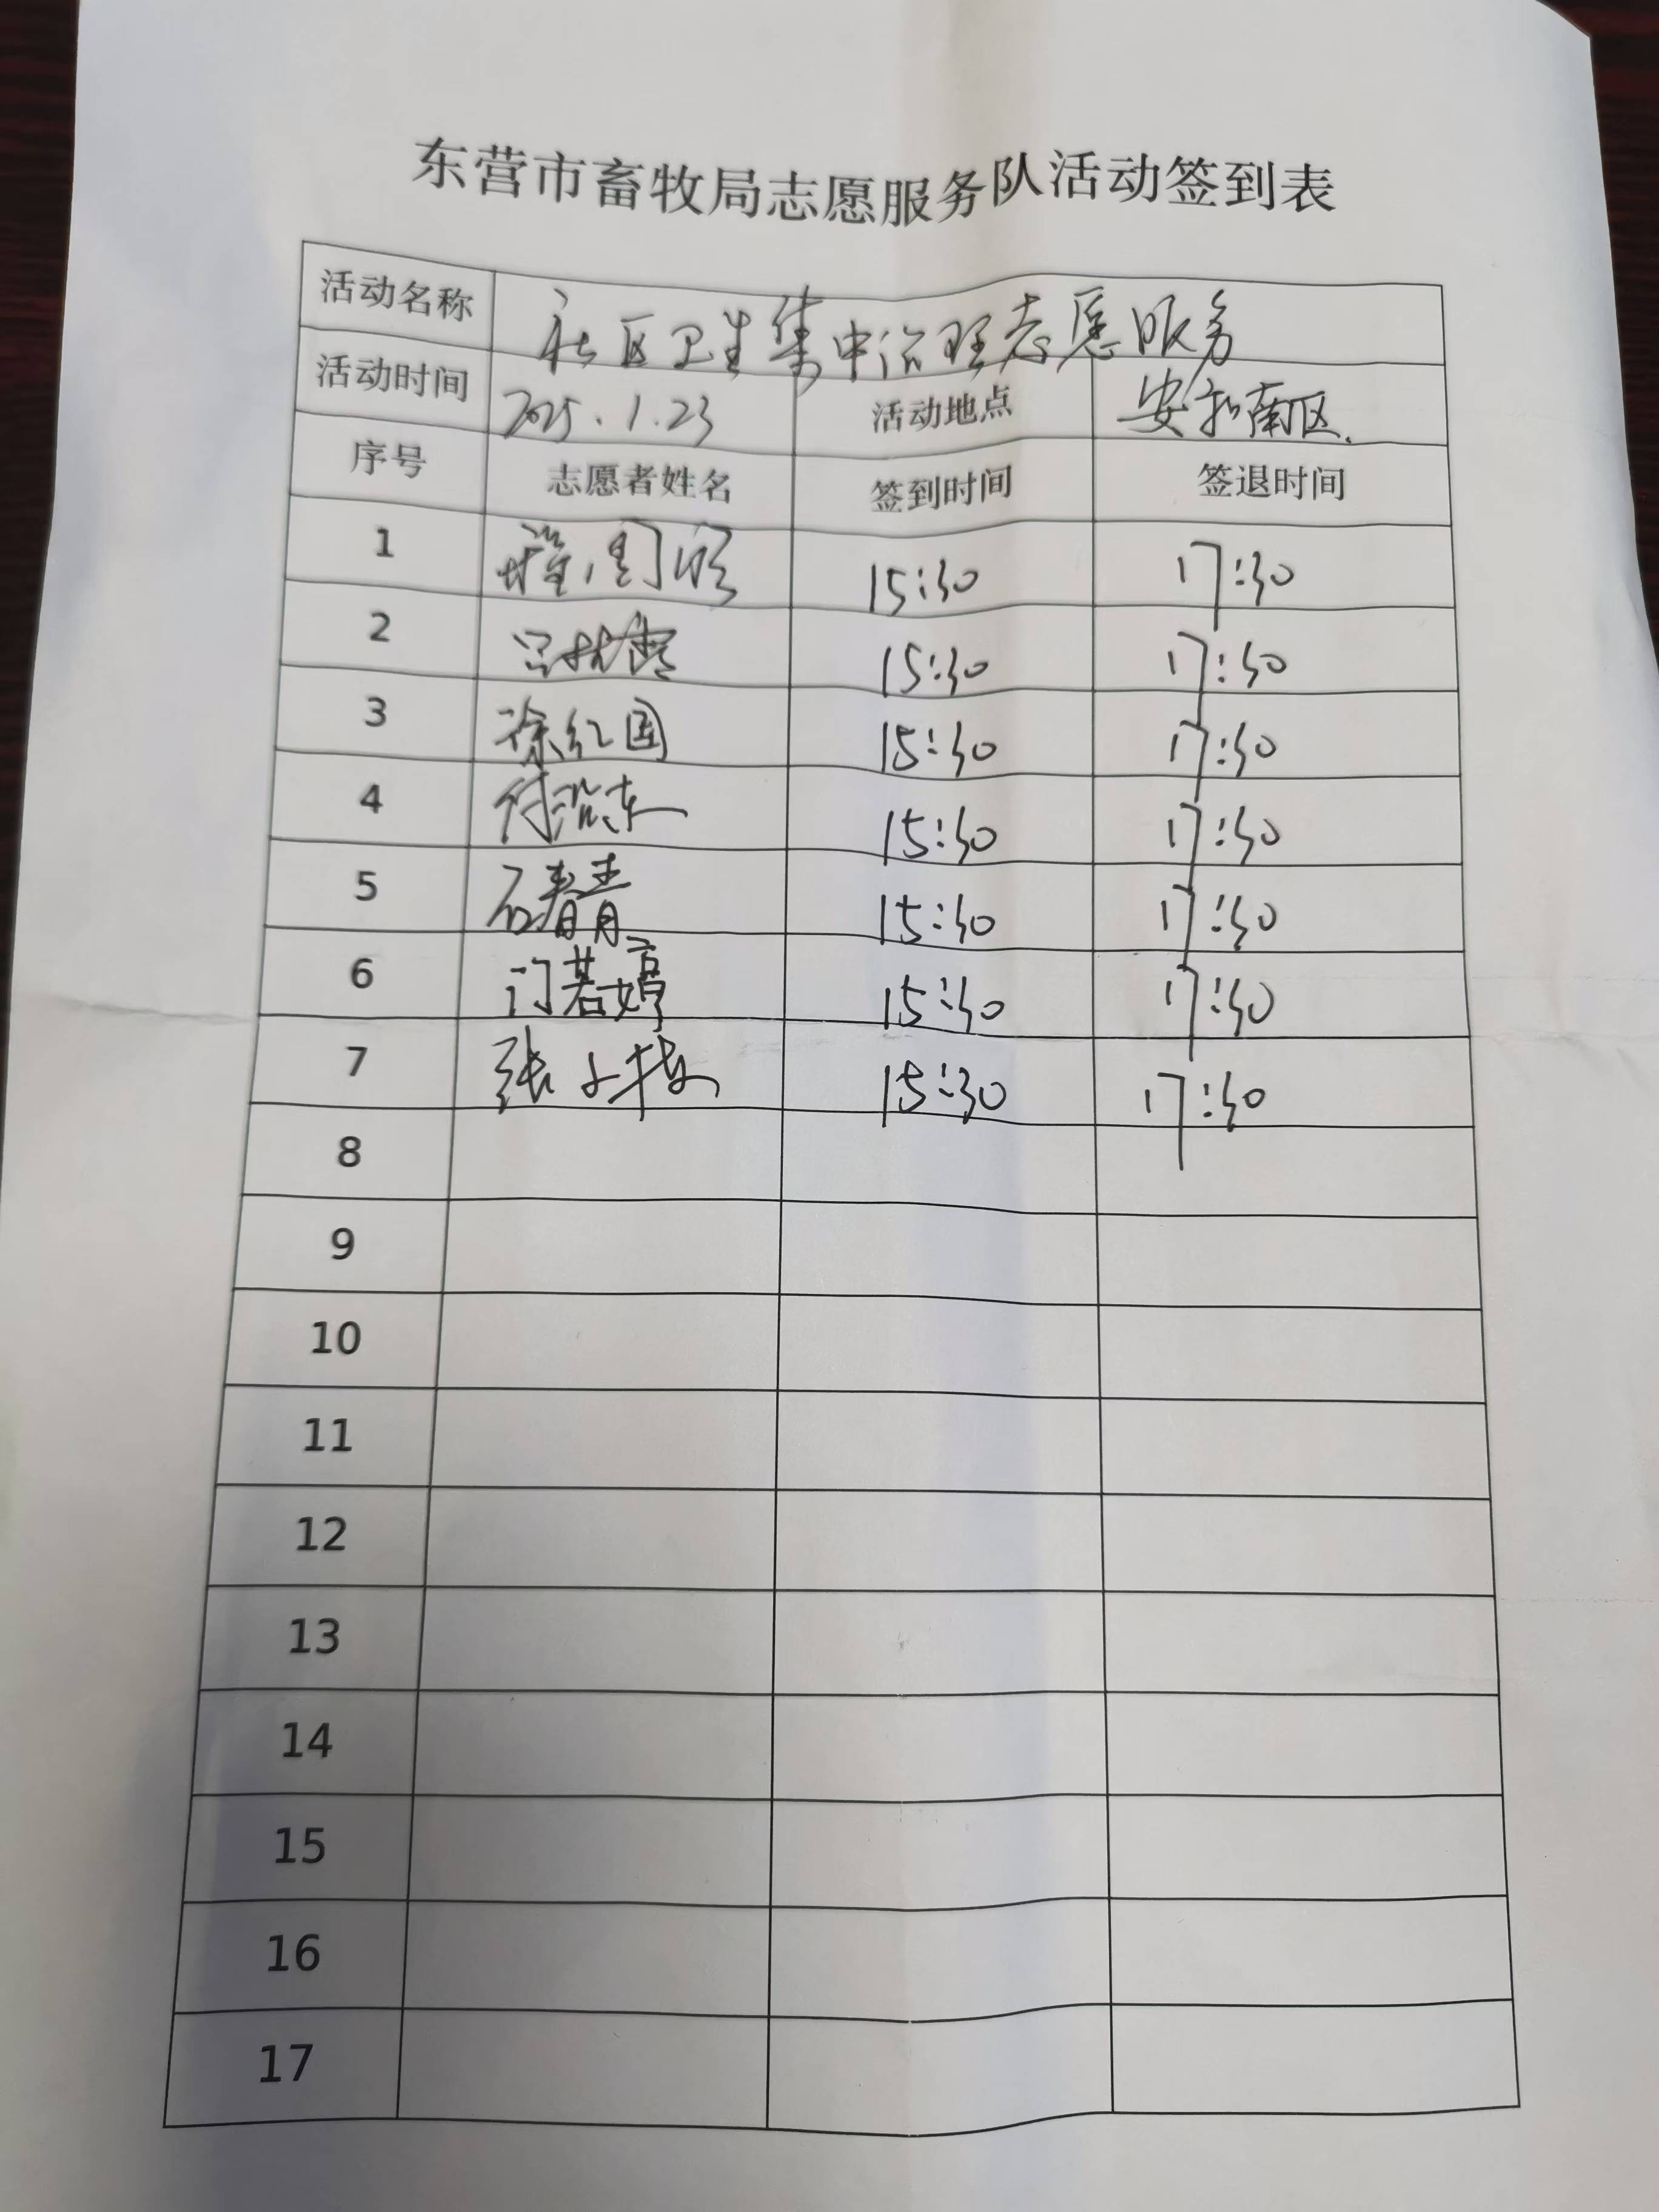 东营市畜牧局志愿服务队活动签到表
活动名称 社区卫生集中治理志愿服务
活动时间 2025.1.23 活动地点 安和南区
序号 志愿者姓名 签到时间 签退时间
1 15:30 17:30
2 15:30 17:30
3 徐红国 15:30 17:30
4 15:30 17:30
5 石春青 15:30 17:30
6 门若婷 15:30 17:30
7 张 15:30 17:30
8
9
10
11
12
13
14
15
16
17